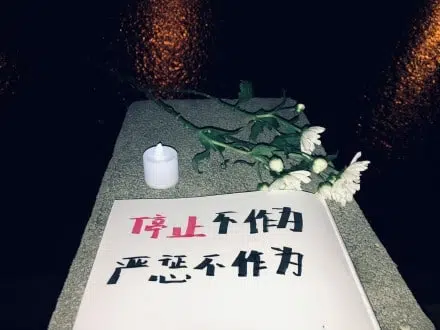 停止不作为
严惩不作为